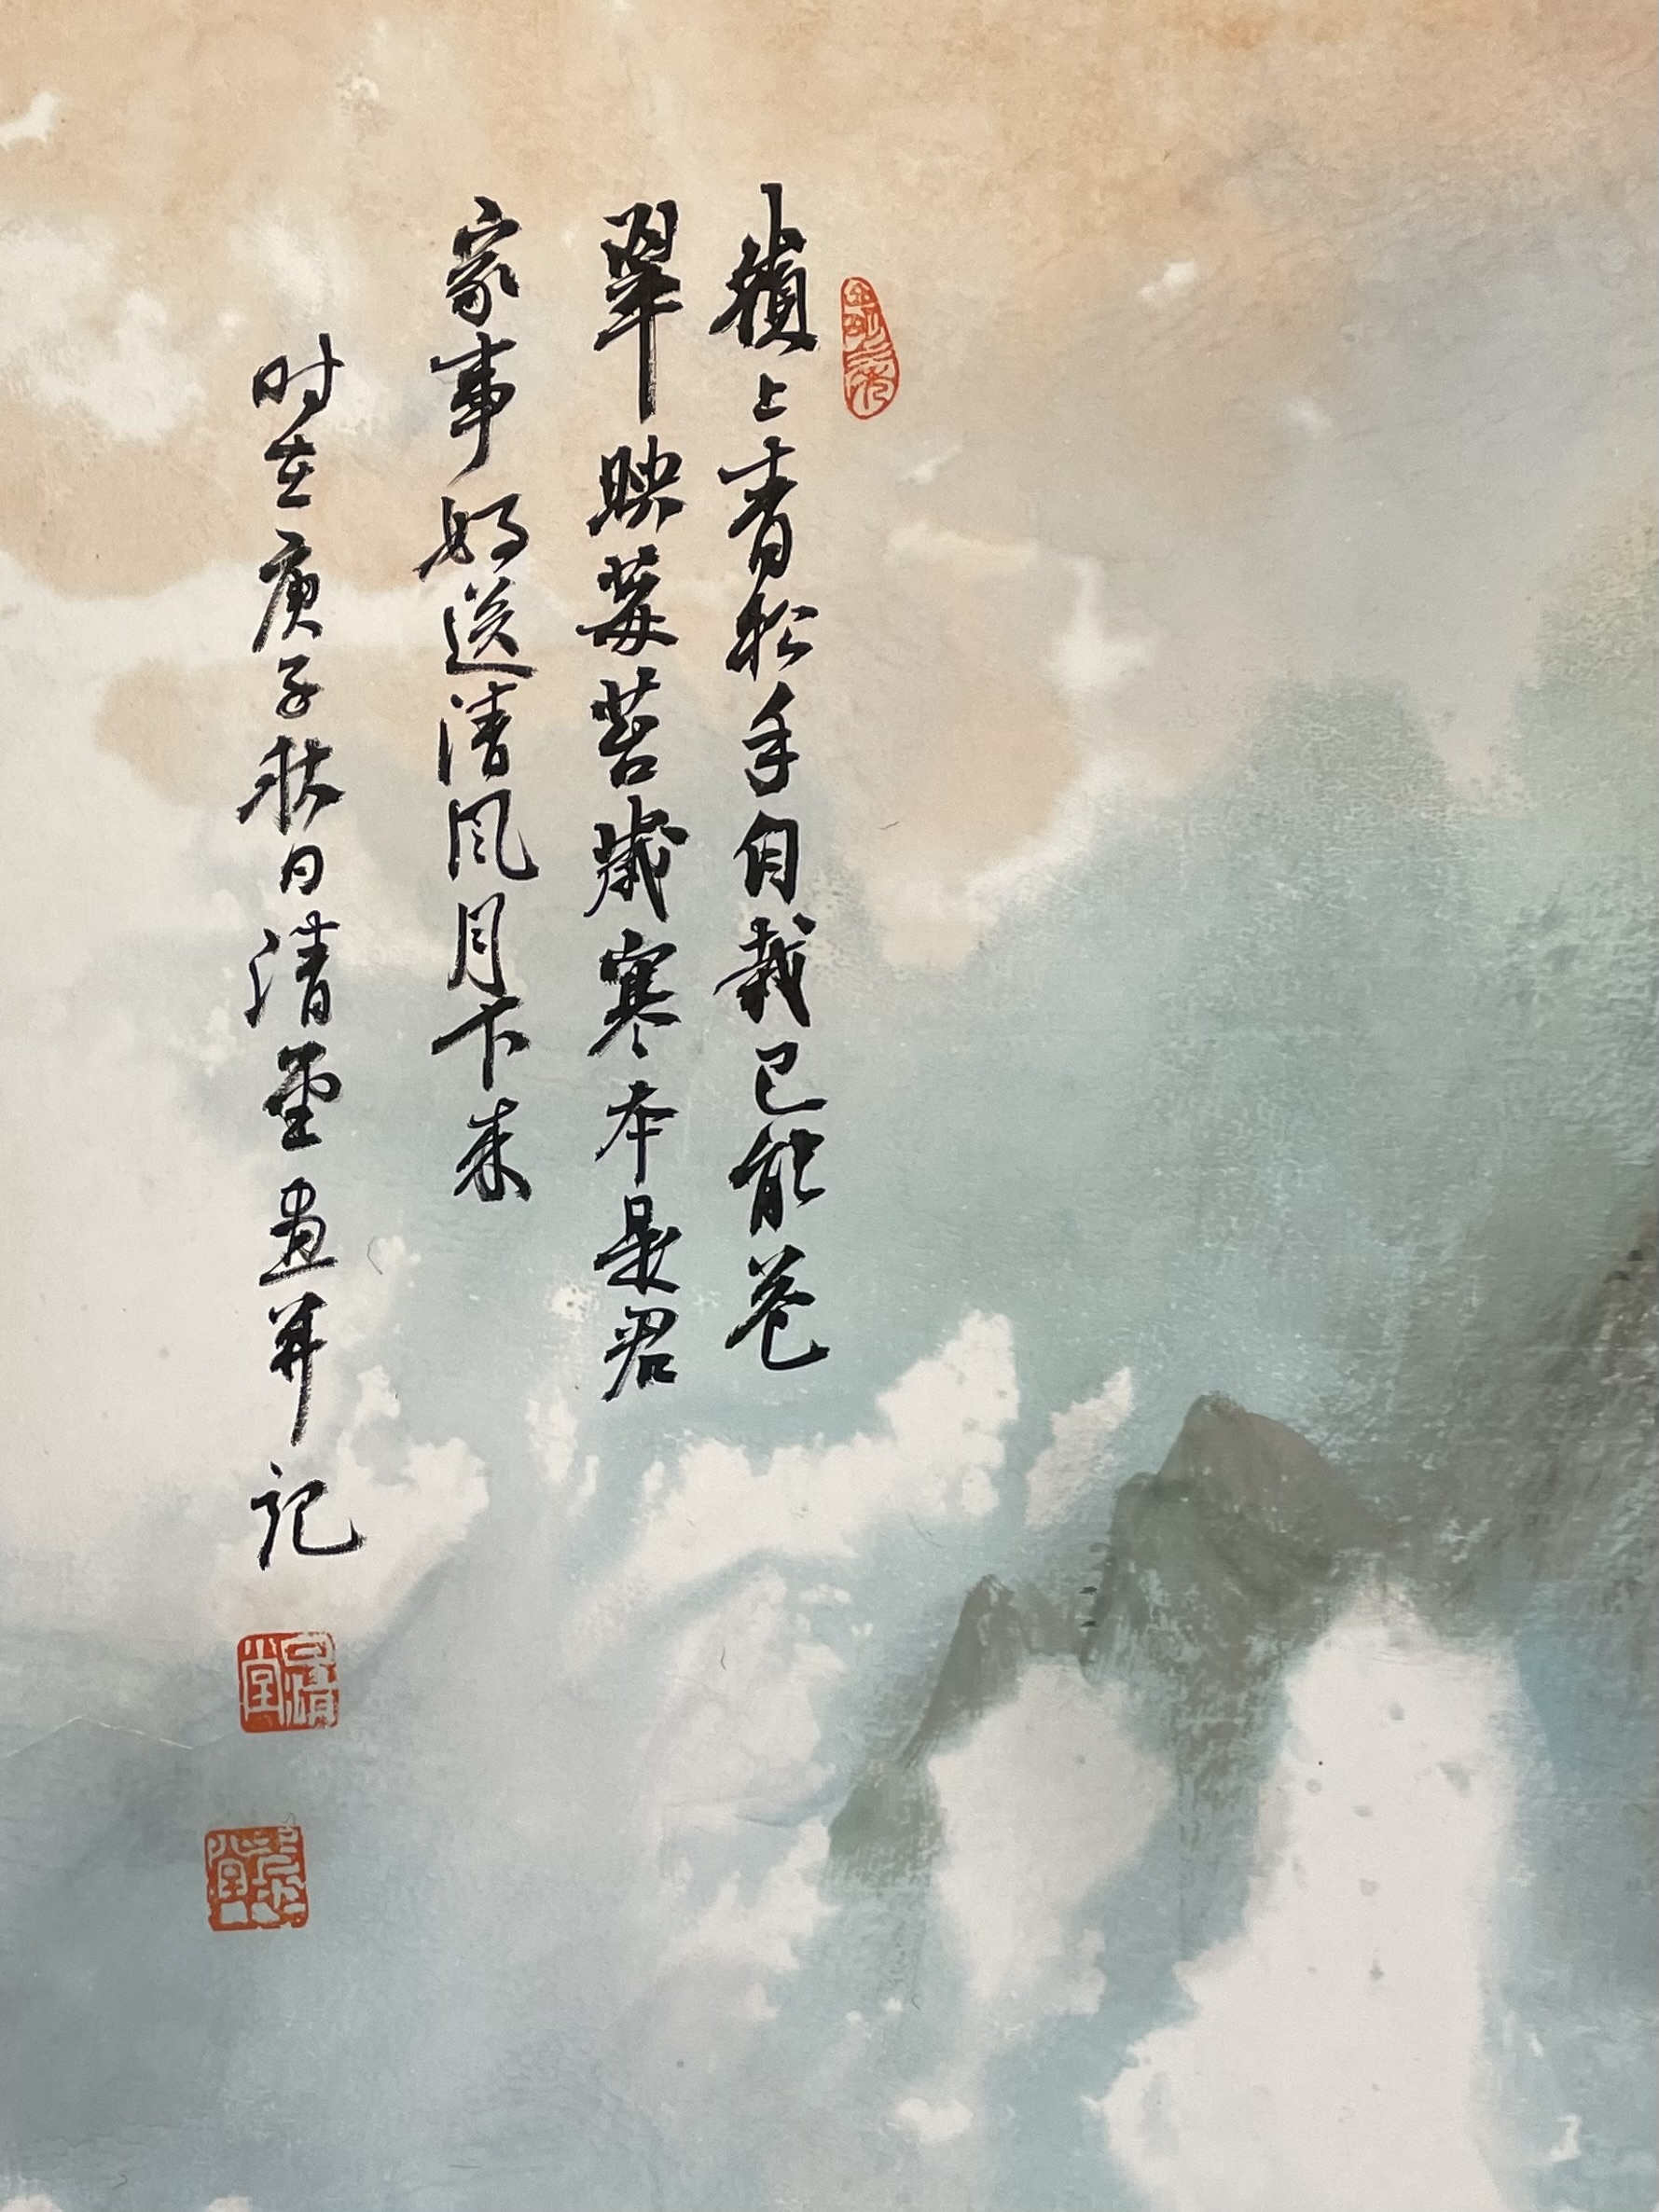 嶺上青松手自栽已能苍
翠映莓苔歲寒本是君
家事好送清风月下来
时在庚子秋日清堂画并记